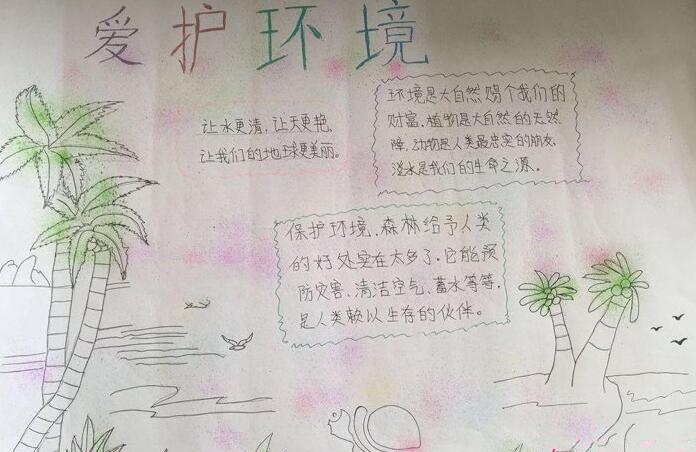 爱护环境
让水更清,让天更艳,
让我们的地球更美丽。
环境是大自然赐个我们的
财富,植物是大自然的天然
障,动物是人类最忠实的朋友,
淡水是我们的生命之源。
保护环境,森林给予人类
的好处实在太多了.它能预
防灾害、清洁空气、蓄水等等,
是人类赖以生存的伙伴。